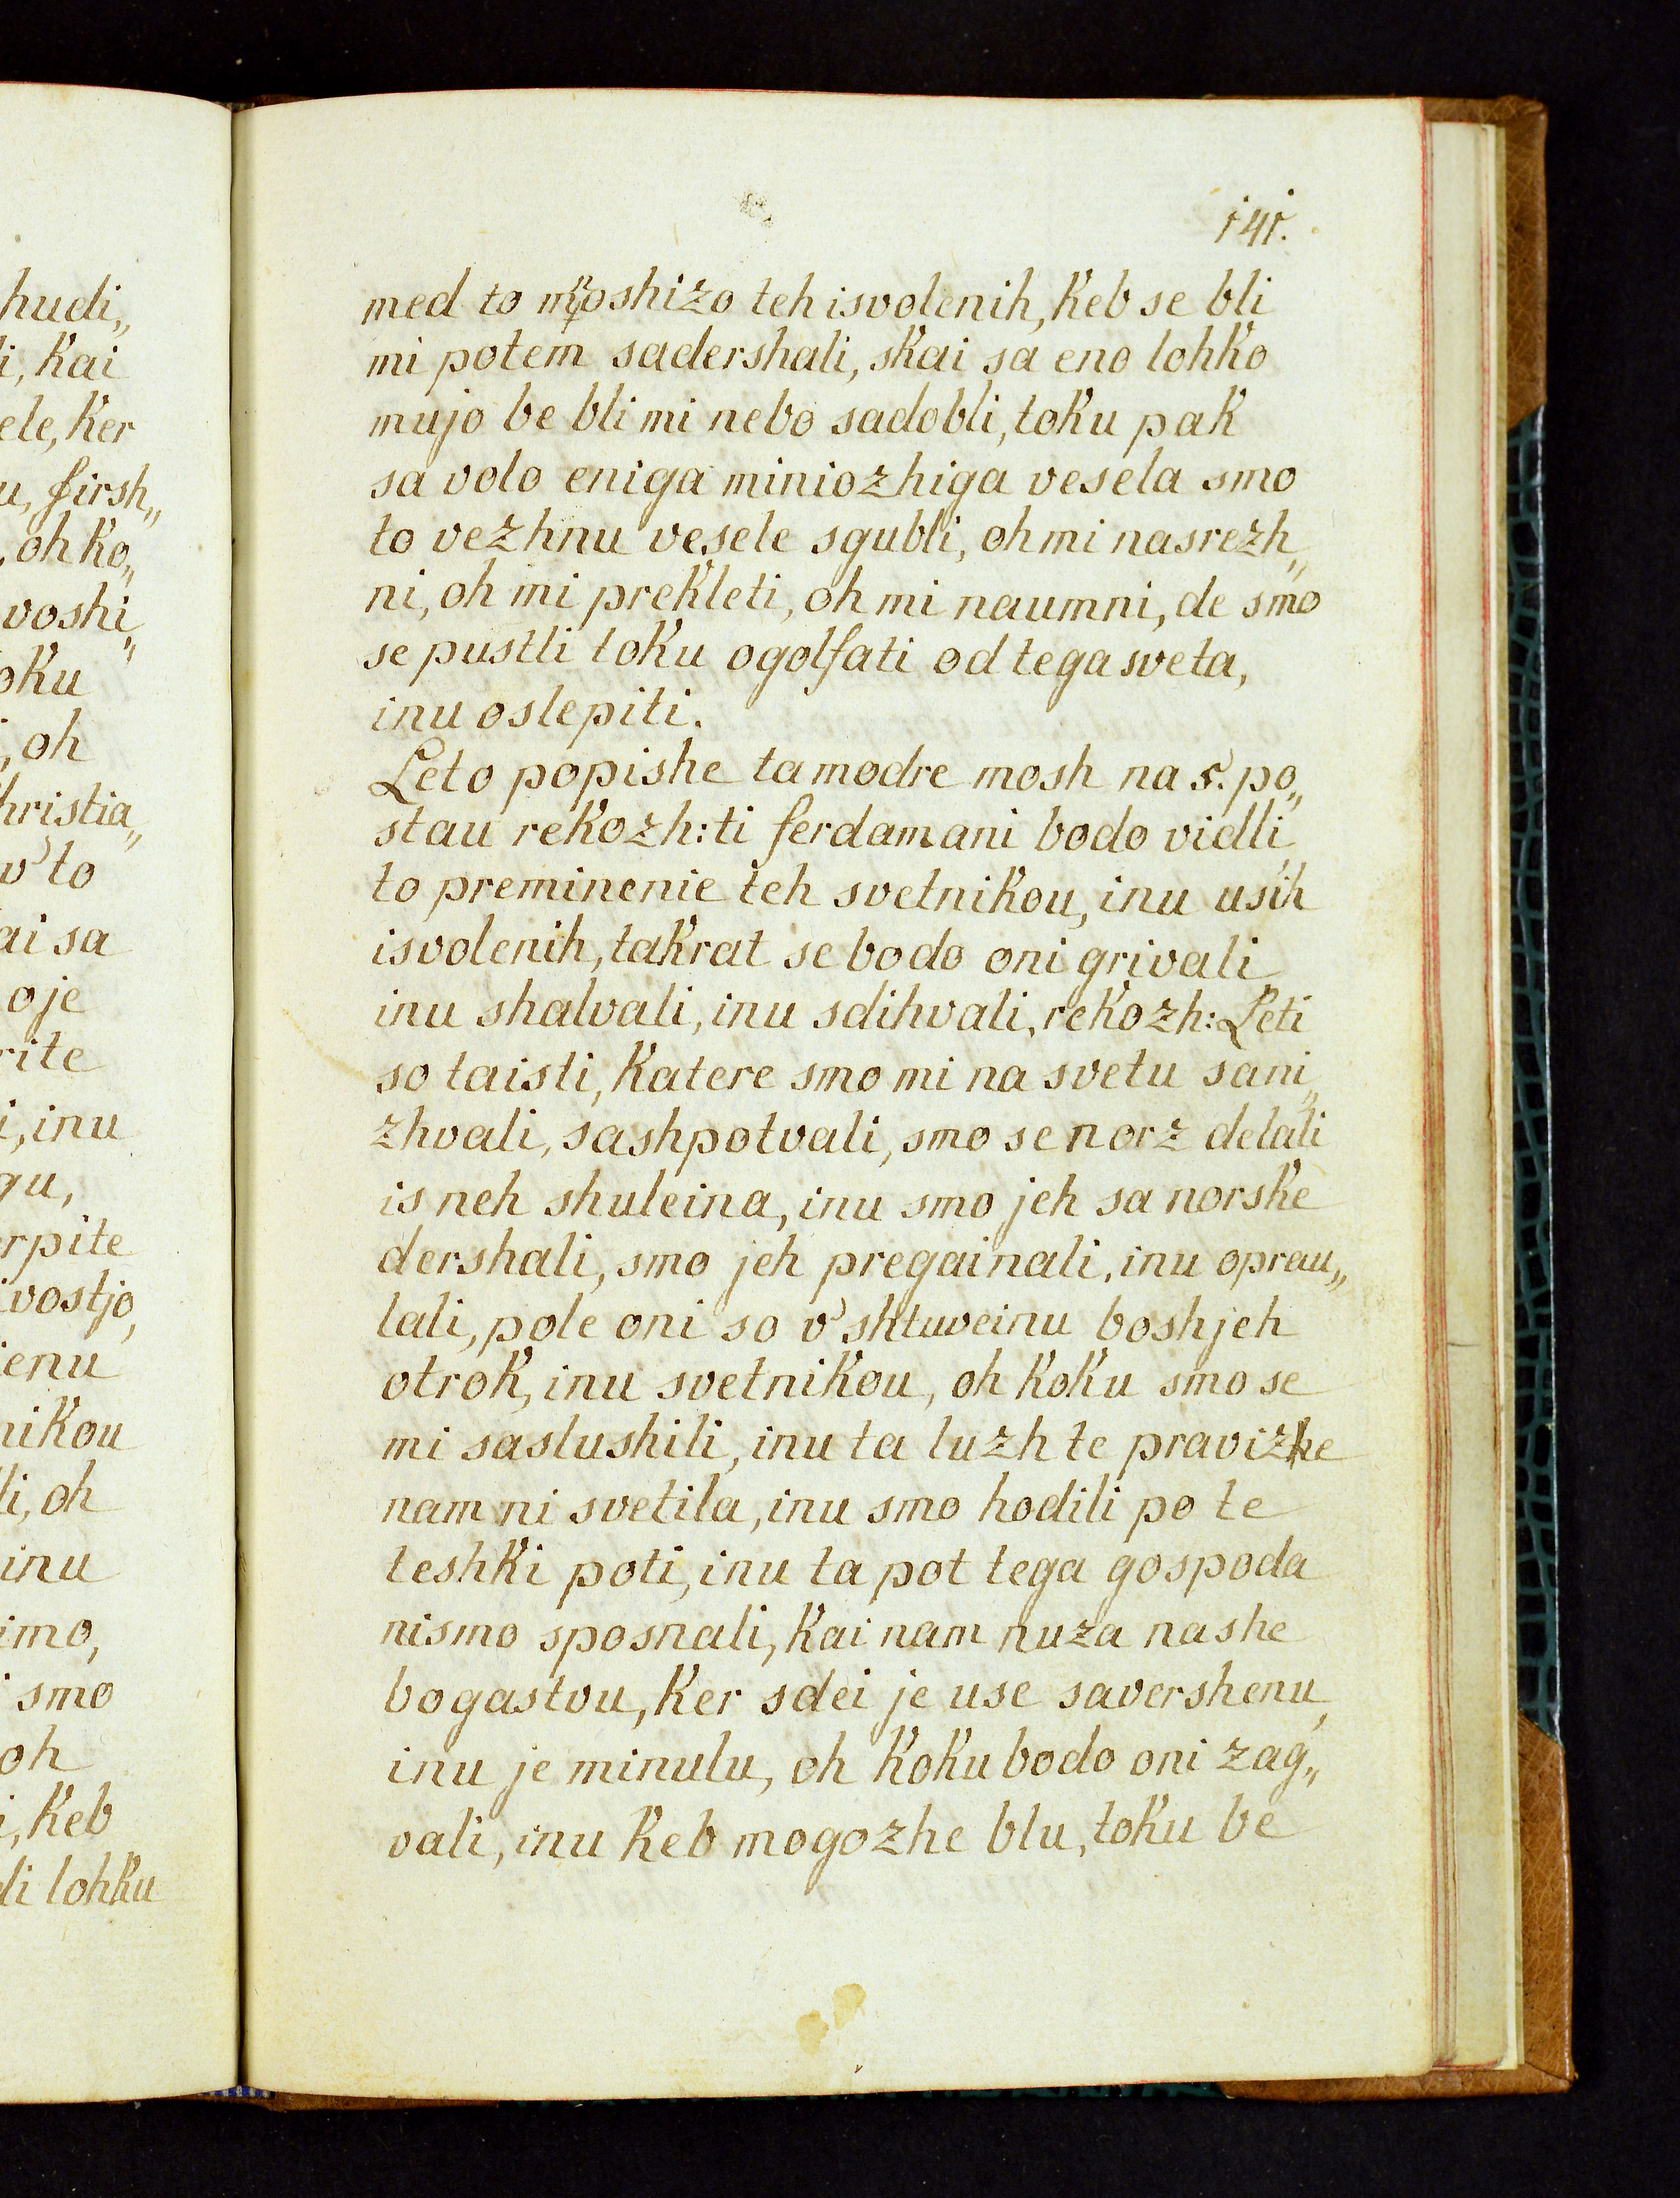 141.
med to mnoshizo teh isvolenih, keb se bli
mi potem sadershali, skai sa eno lohko
mujo be bli mi nebo sadobli, toku pak
sa volo eniga miniozhiga vesela smo
to vezhnu vesele sgubli, oh mi nasrezh„
ni, oh mi prekleti, oh mi naumni, de smo
se pustli toku ogolfati od tega sveta,
inu oslepiti.
Leto popishe ta modre mosh na 5. po„
stau rekozh: ti ferdamani bodo vidli
to preminenie teh svetnikou, inu usih
isvolenih, takrat se bodo oni grivali
inu shalvali, inu sdihvali, rekozh: Leti
so taisti, katere smo mi na svetu sani„
zhvali, sashpotvali, smo se norz delali
is neh shuleina, inu smo jeh sa norske
dershali, smo jeh pregainali, inu oprau„
lali, pole oni so v' shtuveinu boshjeh
otrok, inu svetnikou, oh koku smo se
mi saslushili, inu ta luzh te pravize
nam ni svetila, inu smo hodili po te
teshki poti, inu ta pot tega gospoda
nismo sposnali, kai nam nuza nashe
bogastvu, ker sdei je use savershenu,
inu je minulu, oh koku bodo oni zag„
vali, inu keb mogozhe blu, toku be
hudi„
i, kai
ele, ker
u, firsh„
, oh ko„
voshi„
oku
, oh
hristia„
v' to
ai sa
oje
rite
i, inu
gu,
erpite
ivostjo,
ienu
nikou
li, oh
inu
imo,
smo
oh
i, keb
li lohku